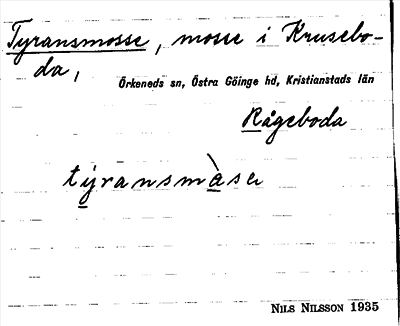 Tyransmosse, mosse i Krusebo-
da,
Örkeneds sn, Östra Göinge hd, Kristianstads län
Rågeboda
týransmàse
Nils Nilsson 1935